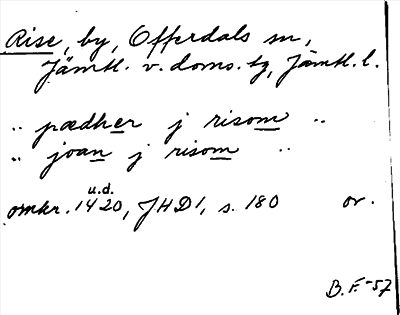 Rise, by, Offerdals sn,
Jämtl. v. doms. tg, Jämtl. l.
.. pædher j risom ..
.. joan j risom ..
u.d.
omkr. 1420, JHD1, s. 180 or.
B. F. -57